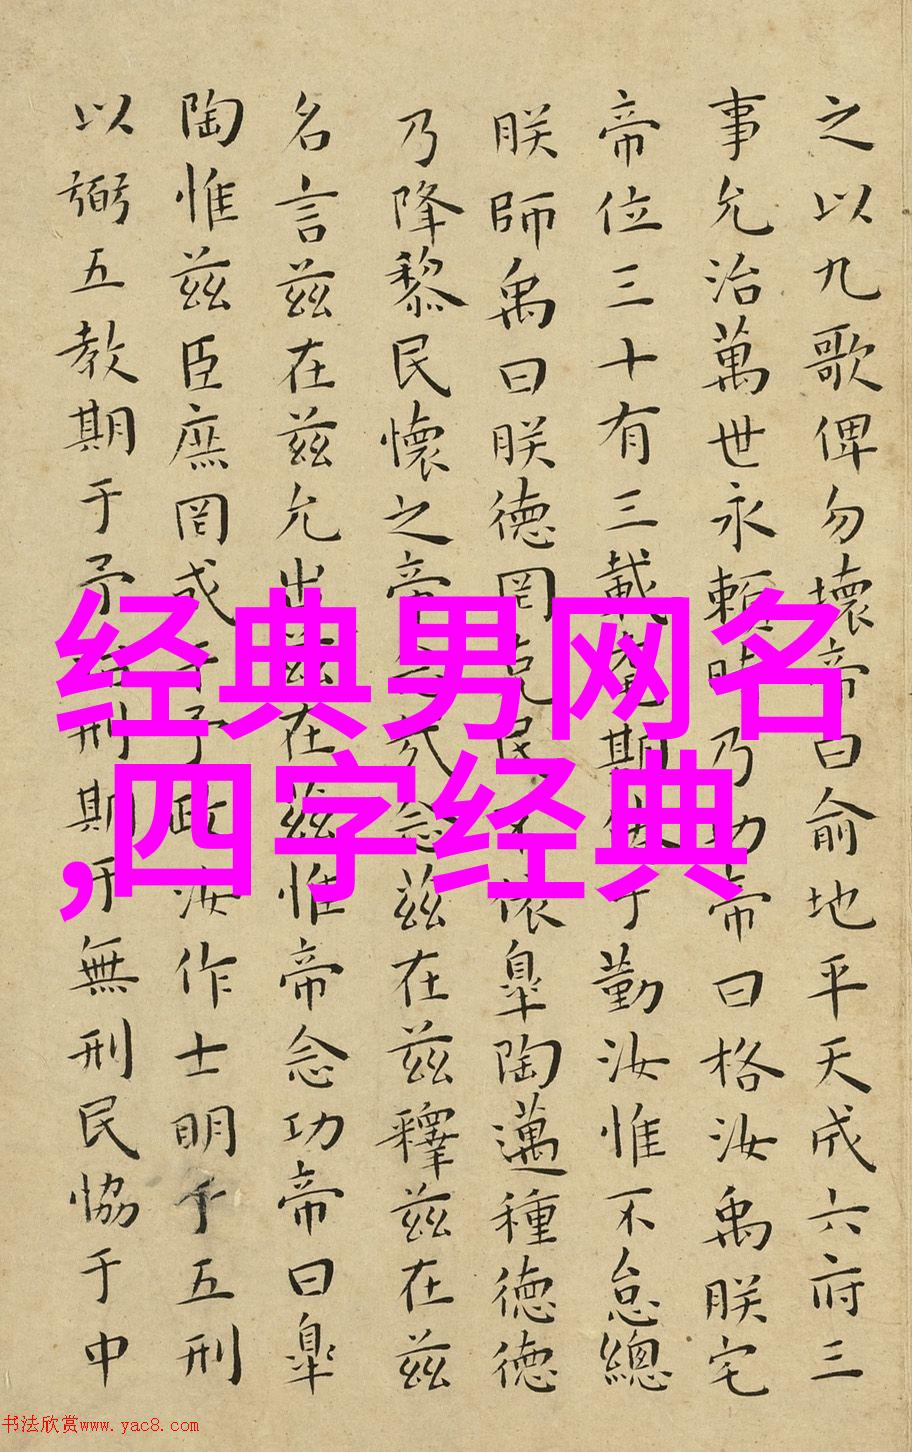 之以九歌俾勿壞帝曰俞地平天成六府三
事允治萬世永賴時乃功帝曰格汝禹朕宅
帝位三十有三載耄期倦于勤汝惟不怠總
朕師禹曰朕德罔克民不依皐陶邁種德德
乃降黎民懷之帝念哉念茲在茲釋茲在茲
名言茲在茲允出茲在茲惟帝念功帝曰皐
陶惟茲臣庶罔或干予政汝作士明于五刑
以弼五教期于予治刑期于無刑民協于中
经典男网名
,四字经典
书法欣赏www.yac8.com